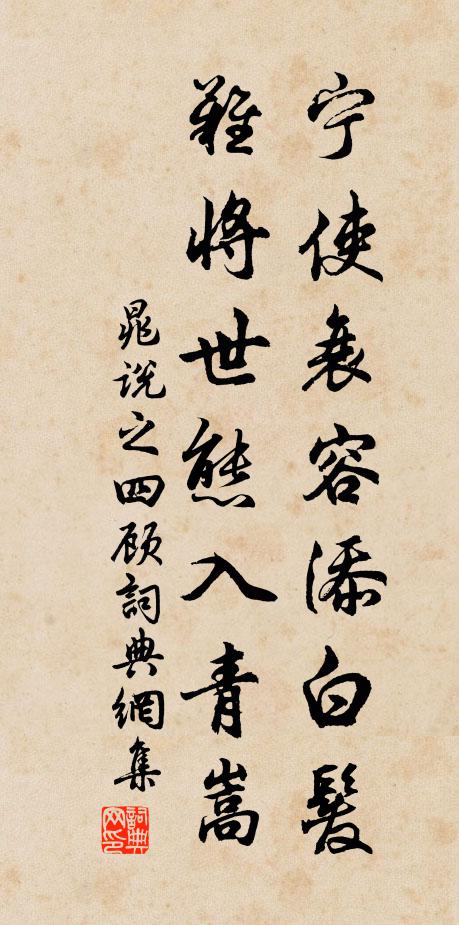 宁使衰容添白髮
難將世態入青嵩
晁說之四顾詞典網集
詞典网印